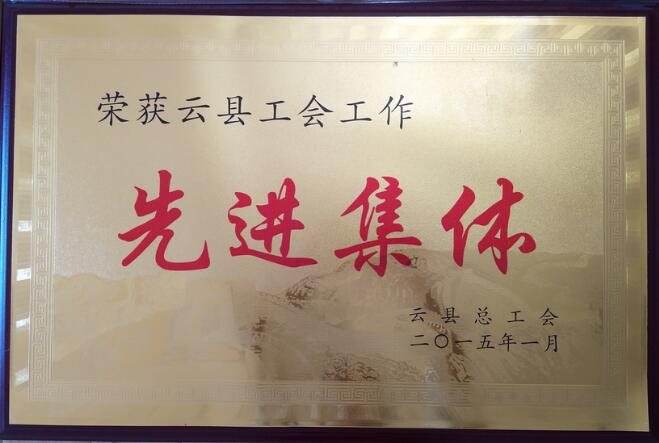 荣获云县工会工作
先进集体
云县总工会
二〇一五年一月